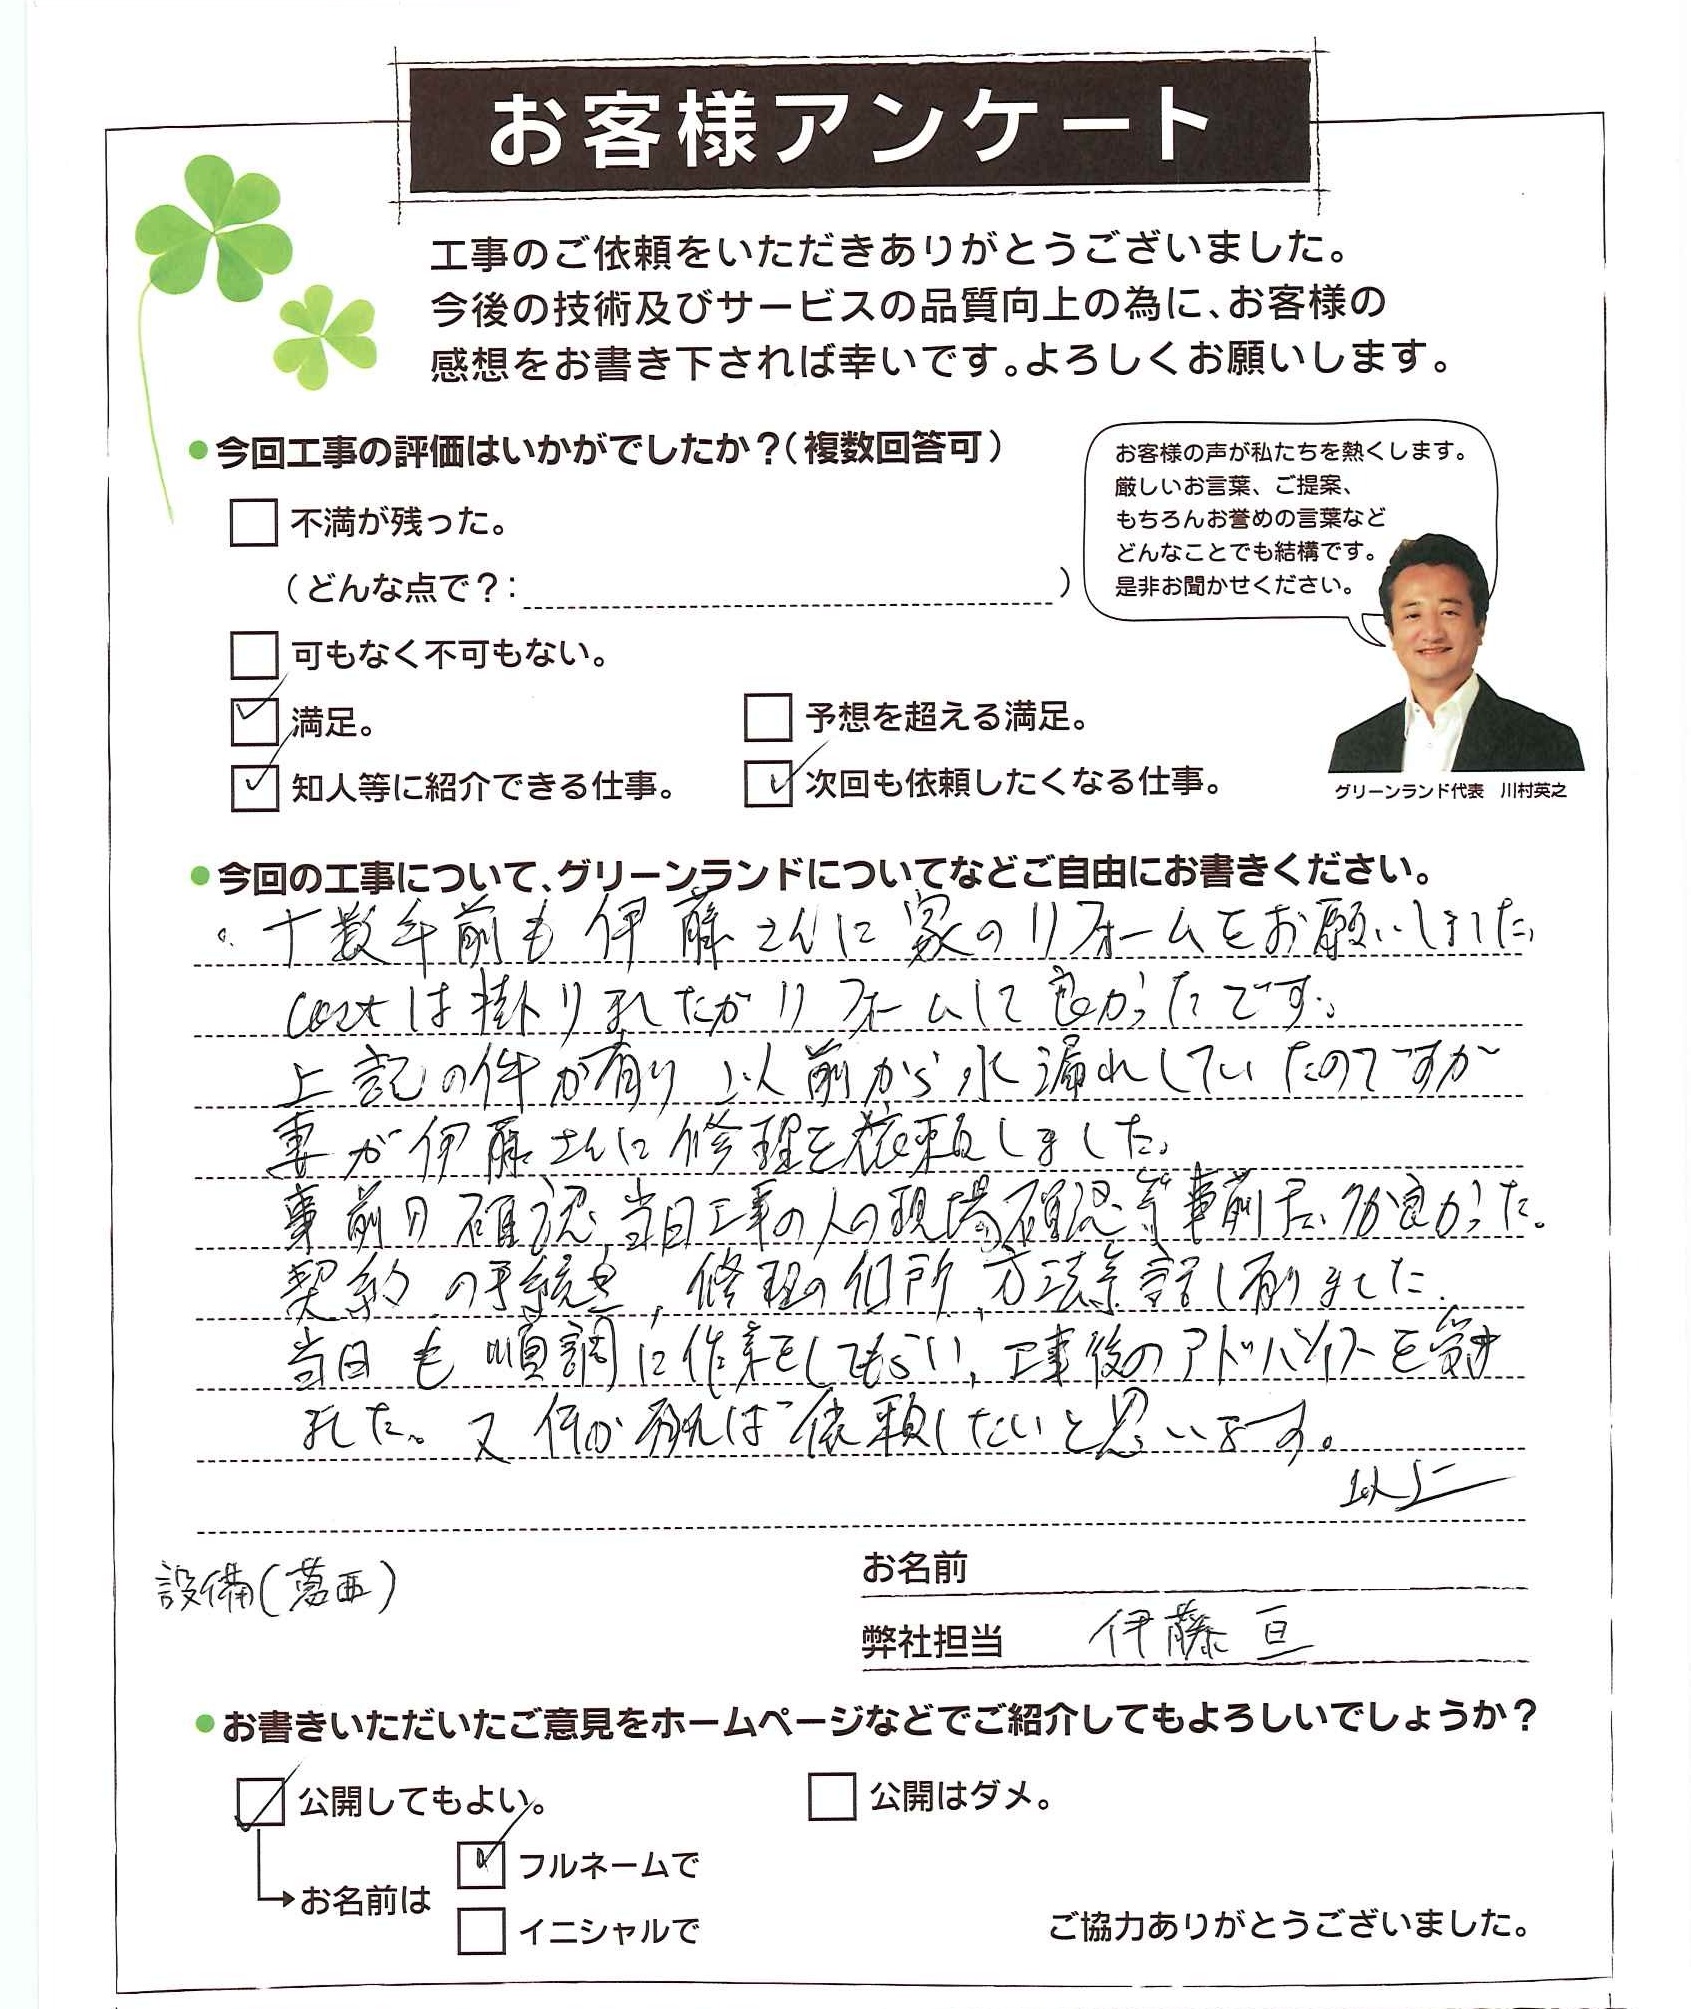 お客様アンケート
工事のご依頼をいただきありがとうございました。
今後の技術及びサービスの品質向上の為に、お客様の
感想をお書き下されば幸いです。よろしくお願いします。
●今回工事の評価はいかがでしたか?(複数回答可)
不満が残った。
(どんな点で?: )
可もなく不可もない。
満足。
予想を超える満足。
知人等に紹介できる仕事。
次回も依頼したくなる仕事。
お客様の声が私たちを熱くします。
厳しいお言葉、ご提案、
もちろんお誉めの言葉など
どんなことでも結構です。
是非お聞かせください。
グリーンランド代表 川村英之
●今回の工事について、グリーンランドについてなどご自由にお書きください。
十数年前も伊藤さんに家のリフォームをお願いしました。
costは掛りましたがリフォームして良かったです。
上記の件が有り以前から水漏れしていたのですが
妻が伊藤さんに修理を依頼しました。
事前の確認、当日工事の人の現場確認等事前 が良かった。
契約の手続き、修理の個所、方法等話し有りました。
当日も順調に作業をしてもらい、工事後のアドバイスを受け
ました。又何か有れば依頼したいと思います。
以上
設備(葛西)
お名前
弊社担当 伊藤 亘
●お書きいただいたご意見をホームページなどでご紹介してもよろしいでしょうか?
公開してもよい。
公開はダメ。
お名前は
フルネームで
イニシャルで
ご協力ありがとうございました。